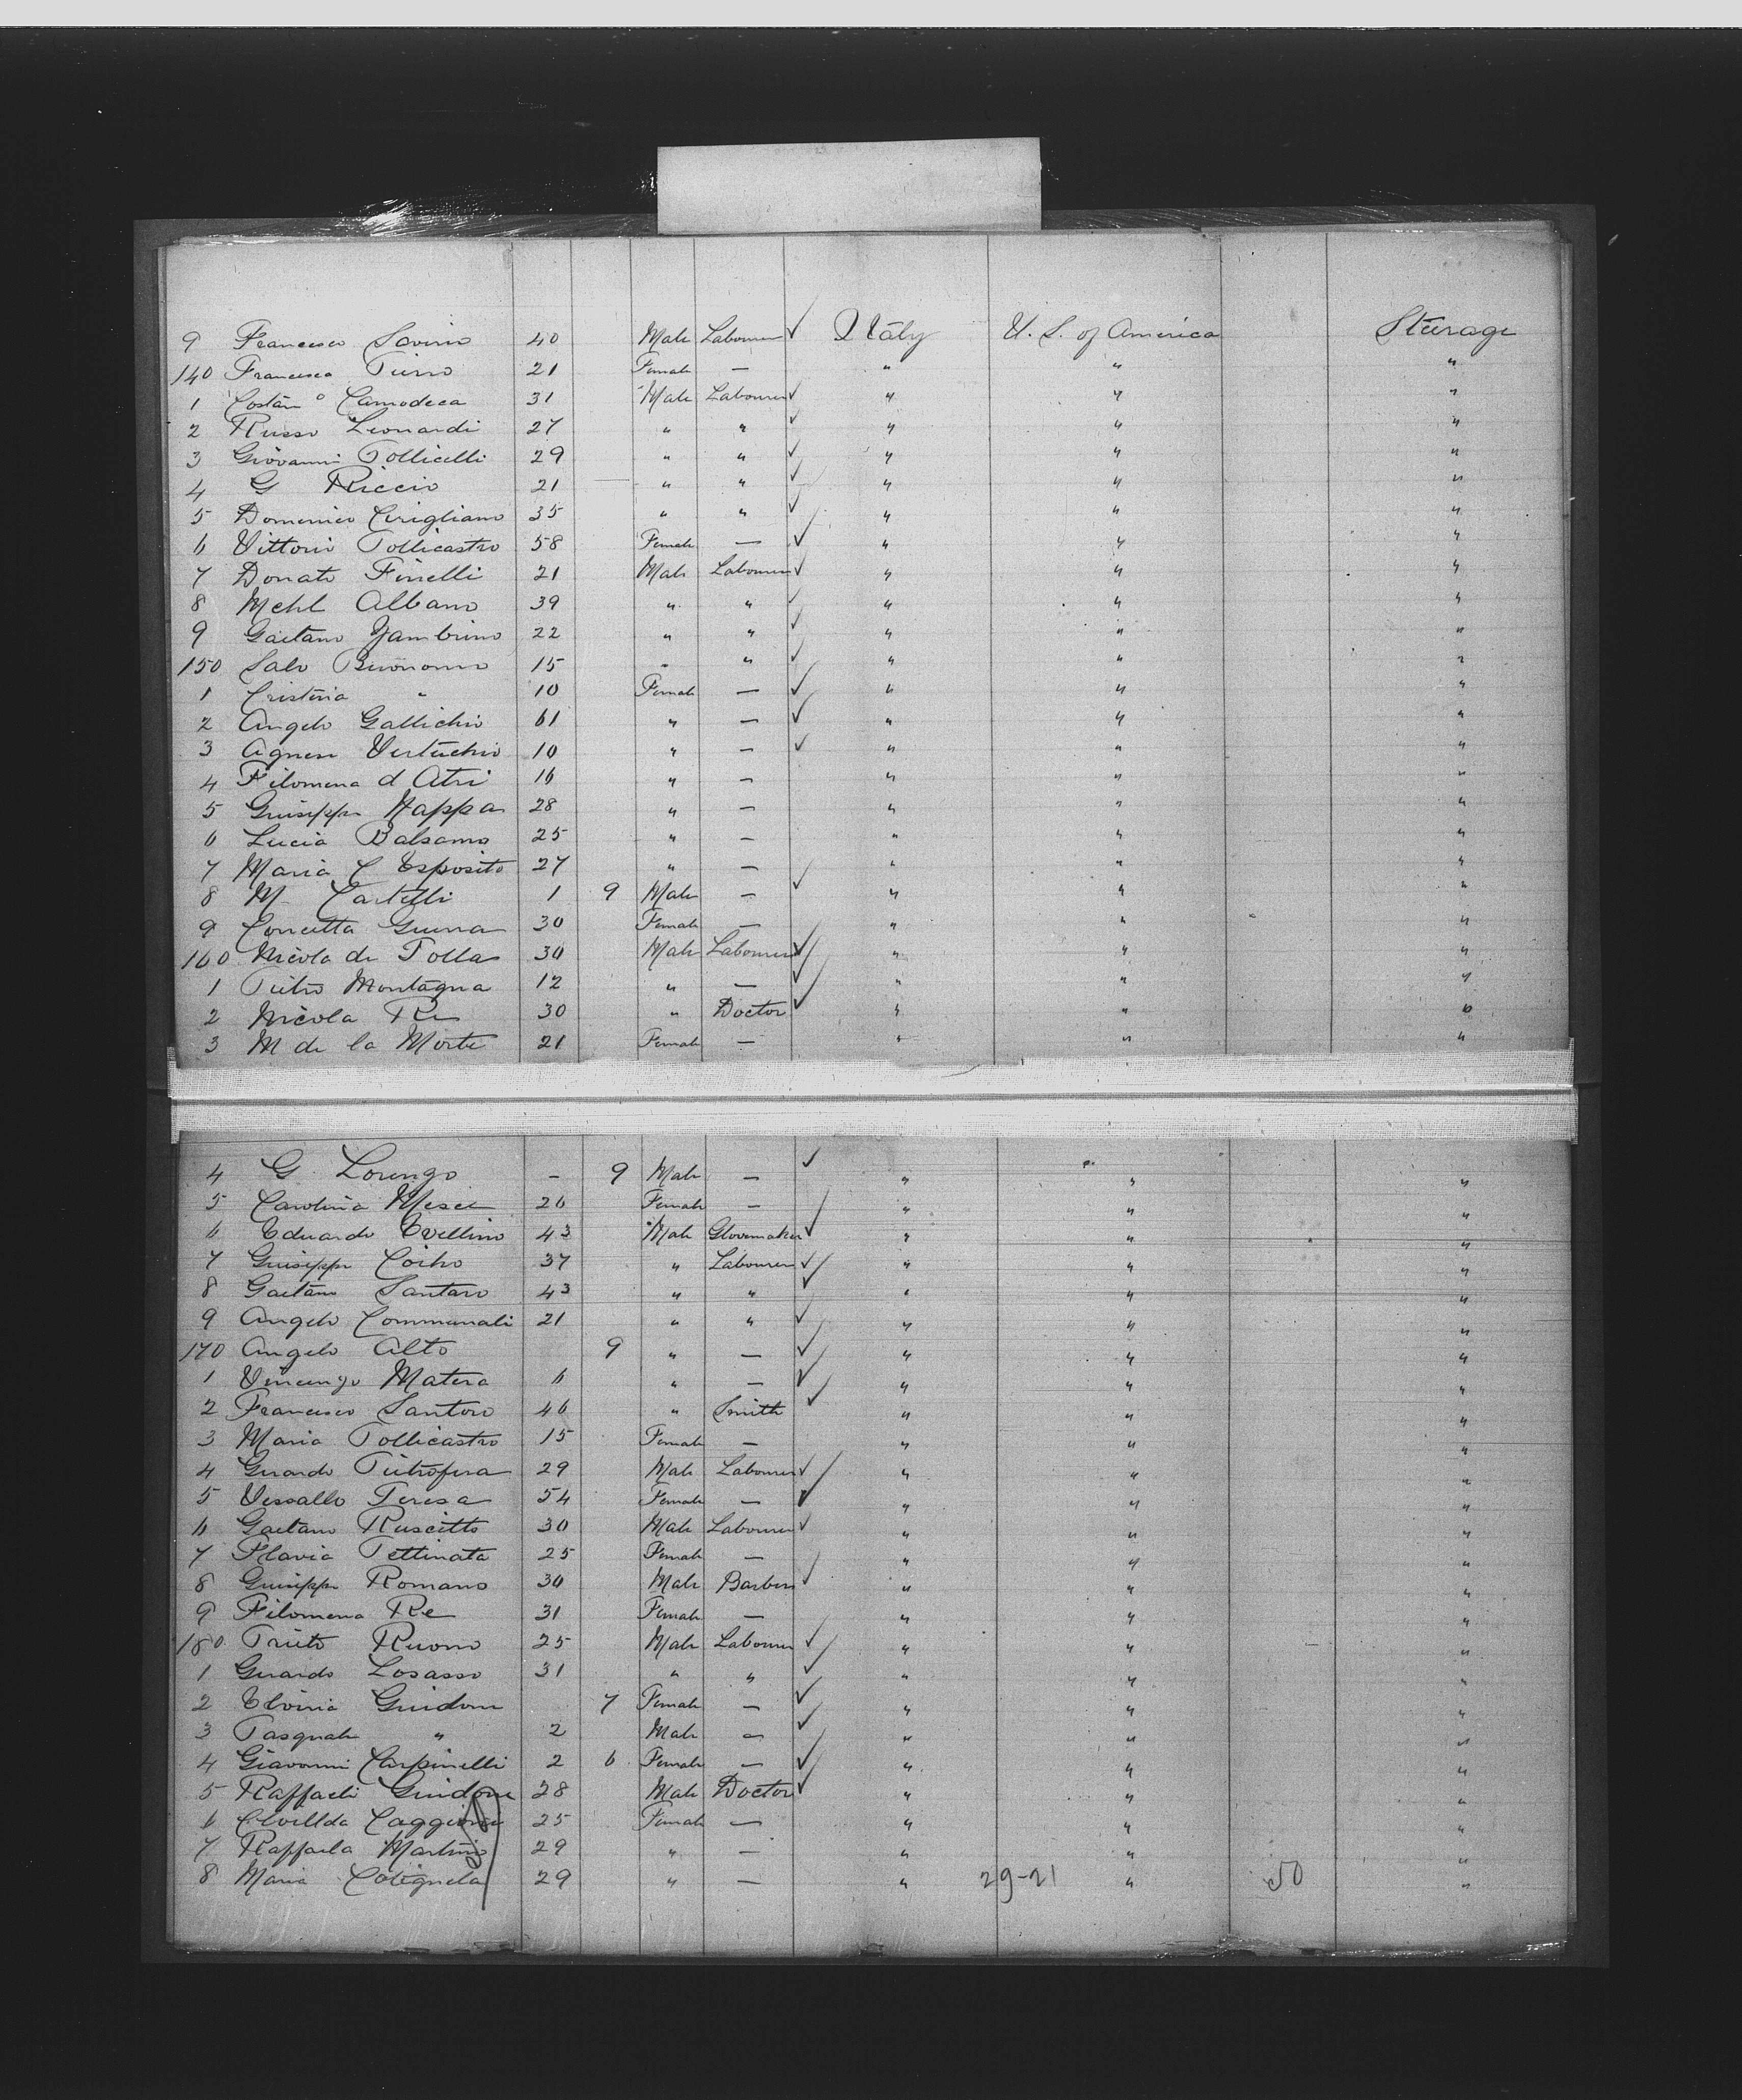 9 Francesco Savino 40 Male Labourer ✓ Italy U. S. of America Steerage
140 Francesca Pirro 21 Female — " " "
1 Costān° Camodeca 31 Male Labourer ✓ " " "
2 Russo Leonardi 27 " " ✓ " " "
3 Giovanni Pollicelli 29 " " ✓ " " "
4 G Riccio 21 " " ✓ " " "
5 Domenico Cirigliano 35 " " ✓ " " "
6 Vittori Pollicastro 58 Female — ✓ " " "
7 Donato Finelli 21 Male Labourer ✓ " " "
8 Mchl Albano 39 " " ✓ " " "
9 Gaetano Yambrino 22 " " ✓ " " "
150 Salv Buonomo 15 " " ✓ " " "
1 Cristina " 10 Female — ✓ " " "
2 Angelo Gallichio 61 " — ✓ " " "
3 Agnese Vertuchio 10 " — ✓ " " "
4 Filomena d Atri 16 " — " " "
5 Guiseppe Nappa 28 " — " " "
6 Lucia Balsamo 25 " — " " "
7 Maria C Esposito 27 " — " " "
8 M Cartelli 1 9 Male — ✓ " " "
9 Concetta Guerra 30 Female — " " "
160 Nicola de Polla 30 Male Labourer ✓ " " "
1 Pietro Montagna 12 " — ✓ " " "
2 Nicola Re 30 " Doctor ✓ " " "
3 M de la Morte 21 Female — " " "
4 G. Lorenzo — 9 Male — ✓ " " "
5 Carolina 26 Female — " " "
6 Eduardo Evellino 43 Male Glovemaker ✓ " " "
7 Guiseppe 37 " Labourer ✓ " " "
8 Gaetano Santaro 43 " " ✓ " " "
9 Angelo Communali 21 " " ✓ " " "
170 Angelo Alto 9 " — ✓ " " "
1 Vincenzo Matera 6 " — ✓ " " "
2 Francesco Santoro 46 " Smith ✓ " " "
3 Maria Pollicastro 15 Female — " " "
4 Gerardo Pietrofesa 29 Male Labourer ✓ " " "
5 Vessallo Teresa 54 Female — ✓ " " "
6 Gaetano Ruscitto 30 Male Labourer ✓ " " "
7 Flavia Pettinata 25 Female — " " "
8 Guiseppe Romano 30 Male Barber ✓ " " "
9 Filomena Re 31 Female — " " "
180 Ruomo 25 Male Labourer ✓ " " "
1 Gerardo Losasso 31 " " ✓ " " "
2 Elvira Guidone 7 Female — ✓ " " "
3 Pasquale " 2 Male — ✓ " " "
4 Giavanni Carpinelli 2 6 Female — ✓ " " "
5 Raffaele Guidone 28 Male Doctor ✓ " " "
6 Caggiano 25 Female — " " "
7 Raffaela Martino 29 " — " " "
8 Maria Cotignela 29 " — " 29-21 " 50 "